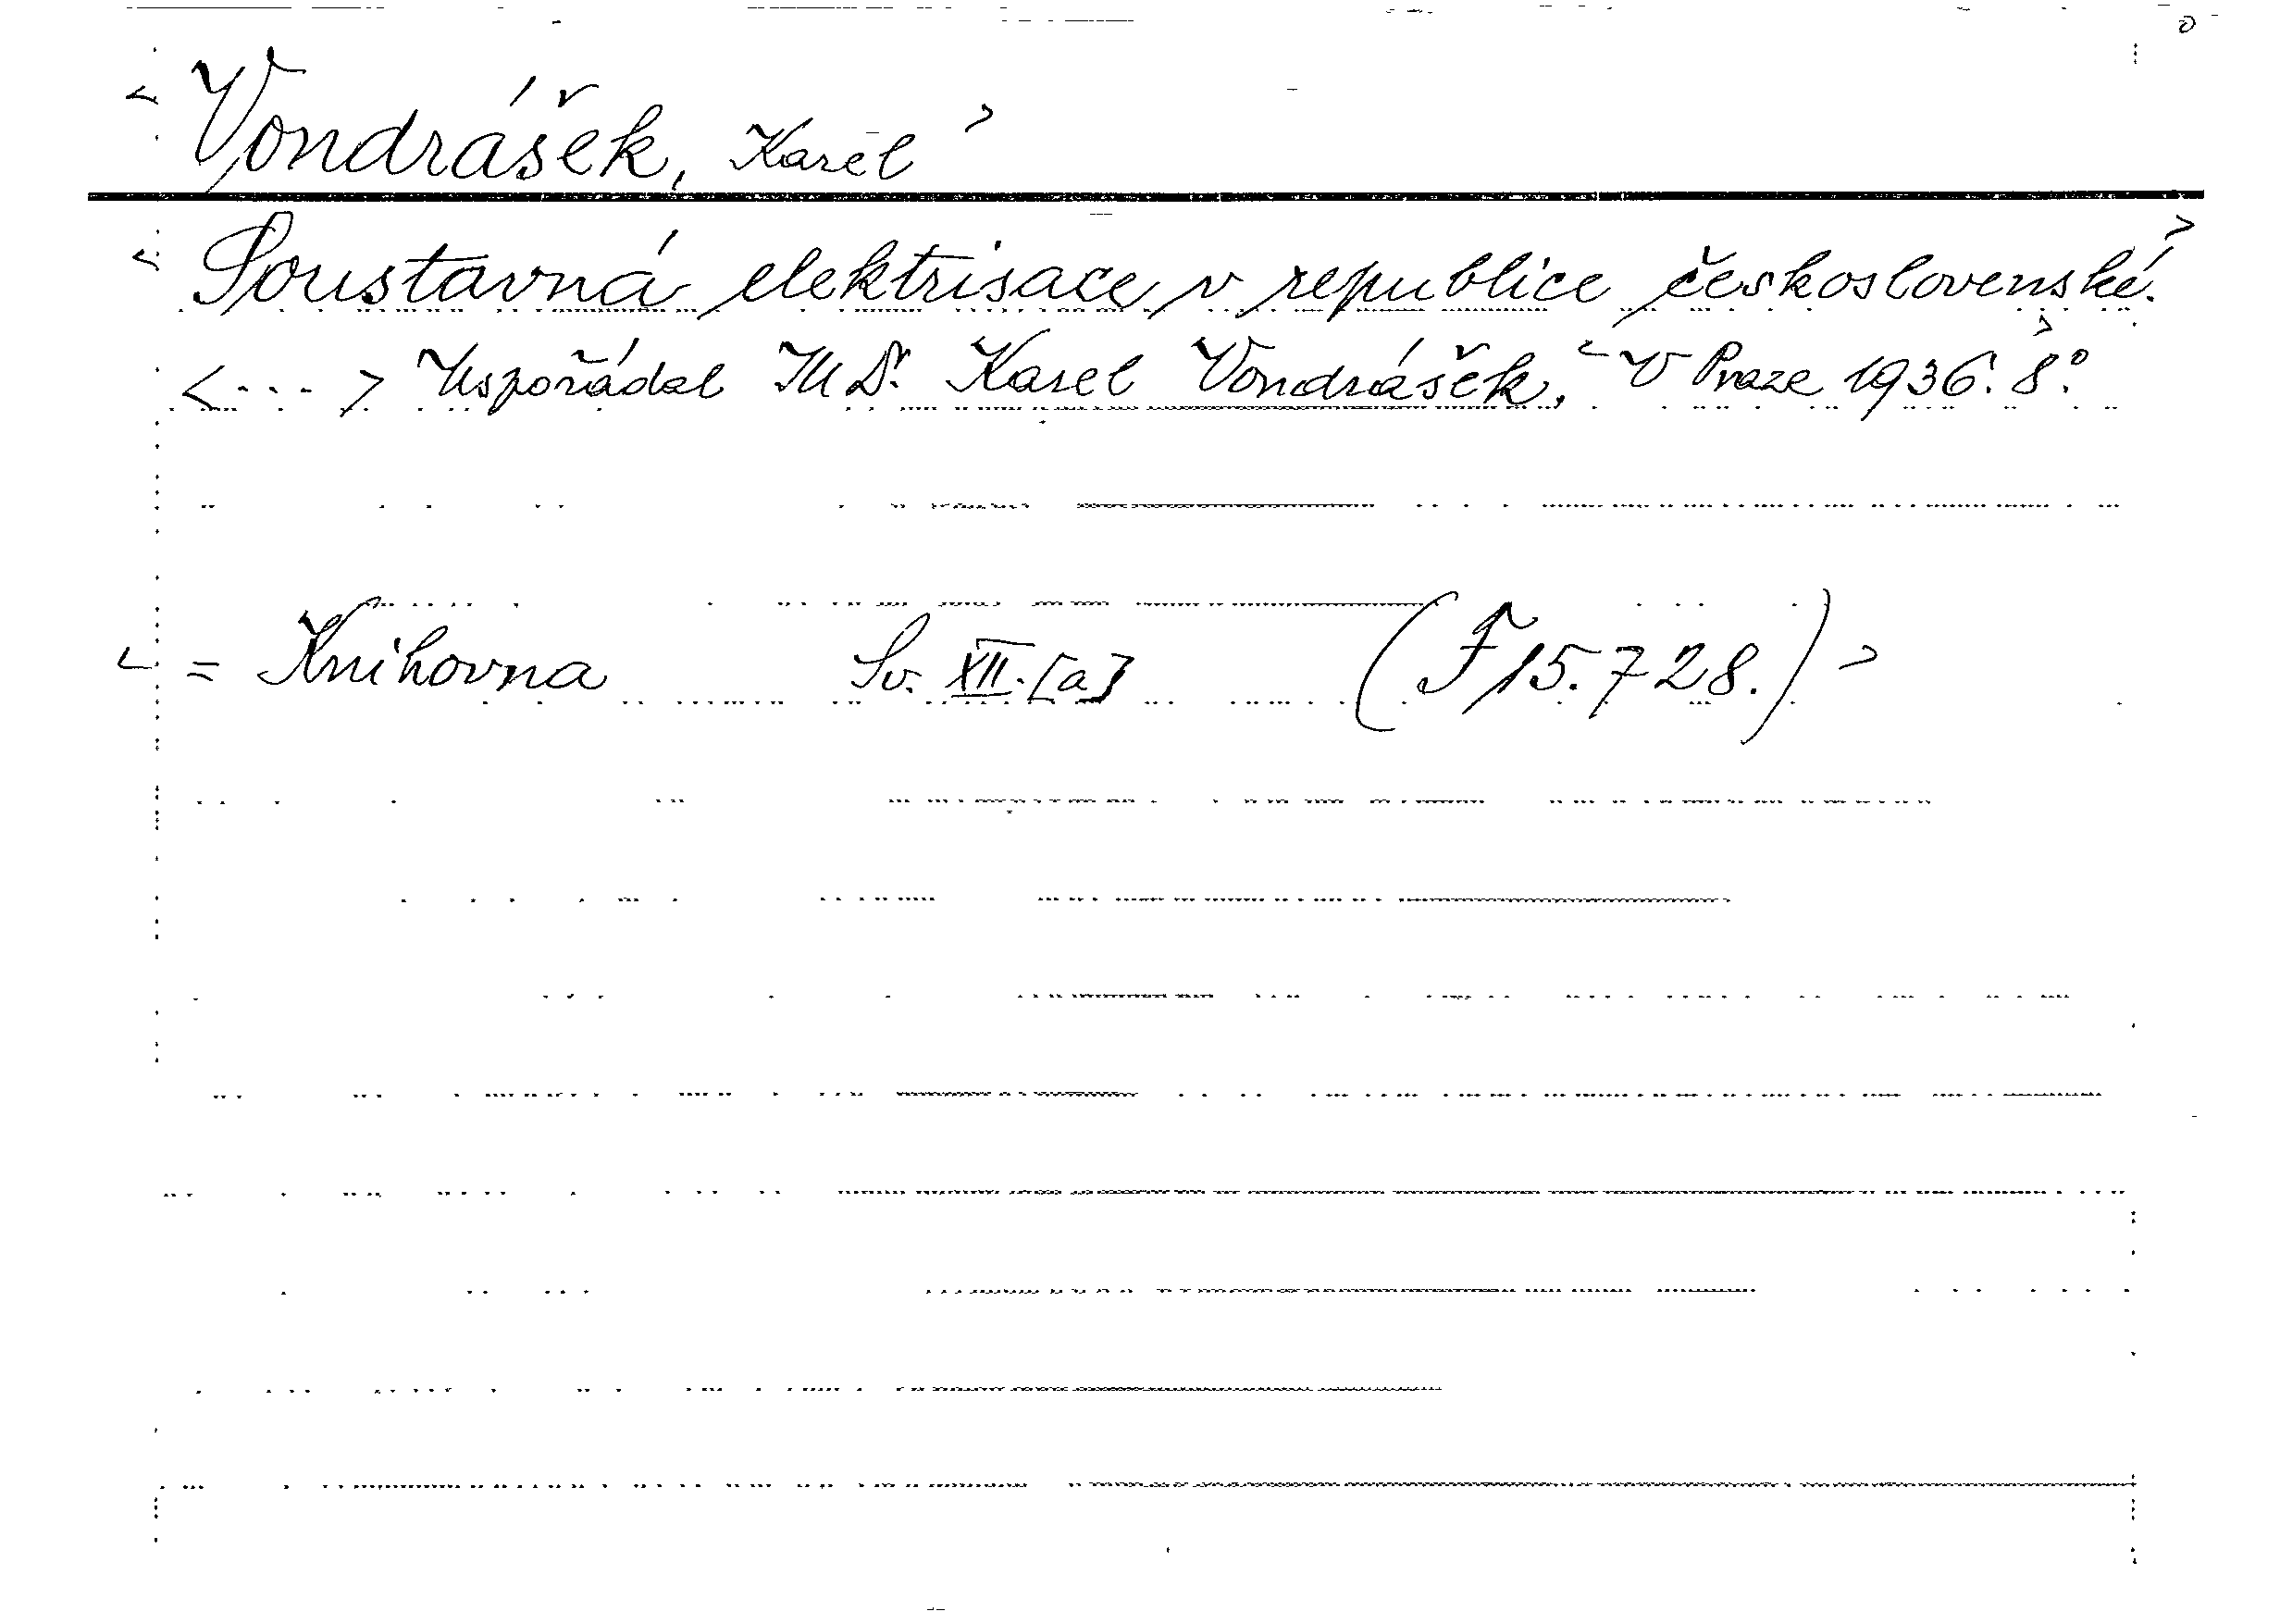 < Vondrášek, Karel >
< Soustavná elektrisace v republice československé. >
< - - - > Uspořádal JUDr. Karel Vondrášek. < V Praze 1936. 8°. >
< = Knihovna Sv. XII. [a] (F 15.728.) >